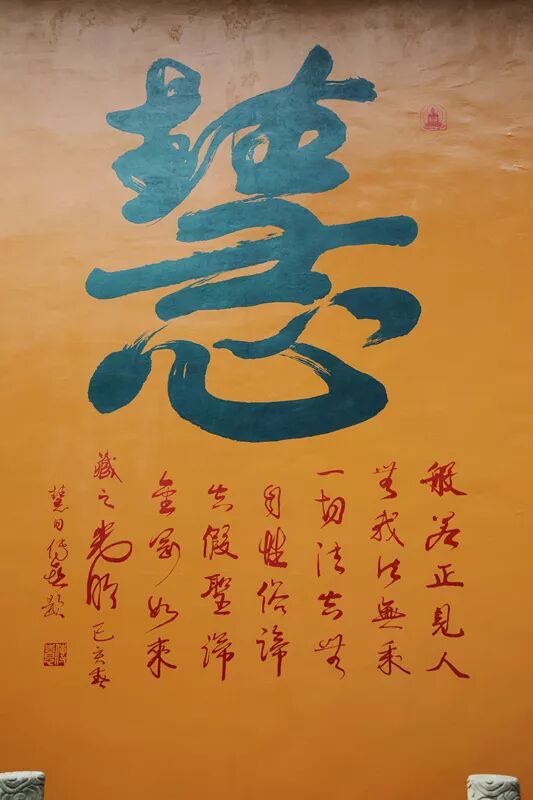 慧
般若正見人
無我法無我
一切法皆無
自性俗諦
皆假聖諦
如來
藏之光明 己亥春
慧日傳喜題